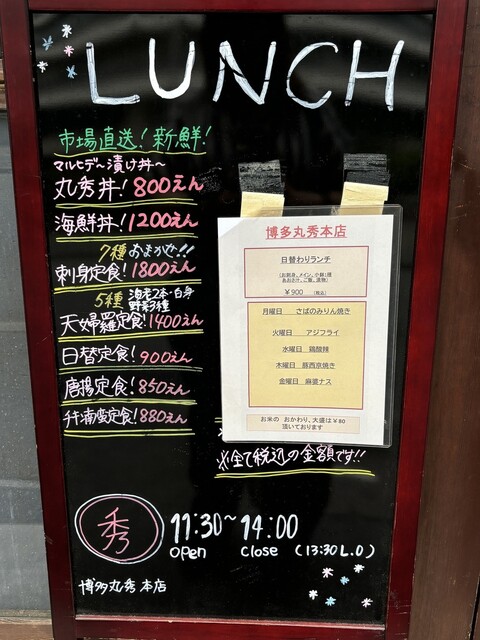 LUNCH
市場直送!新鮮!
マルヒデ〜漬け丼〜
丸秀丼!800えん
海鮮丼!1200えん
7種おまかせ!!
刺身定食!1800えん
5種 海老2本・白身
野菜3種
天婦羅定食!1400えん
日替定食!900えん
唐揚定食!850えん
チキン南蛮定食!880えん
博多丸秀本店
日替わりランチ
(お刺身、メイン、小鉢1種
あおさ汁、ご飯、漬物)
¥900 (税込)
月曜日 さばのみりん焼き
火曜日 アジフライ
水曜日 鶏酸辣
木曜日 豚西京焼き
金曜日 麻婆ナス
お米の おかわり、大盛は¥80
頂いております
※全て税込の金額です!!
秀
11:30〜14:00
open close (13:30 L.O)
博多丸秀本店